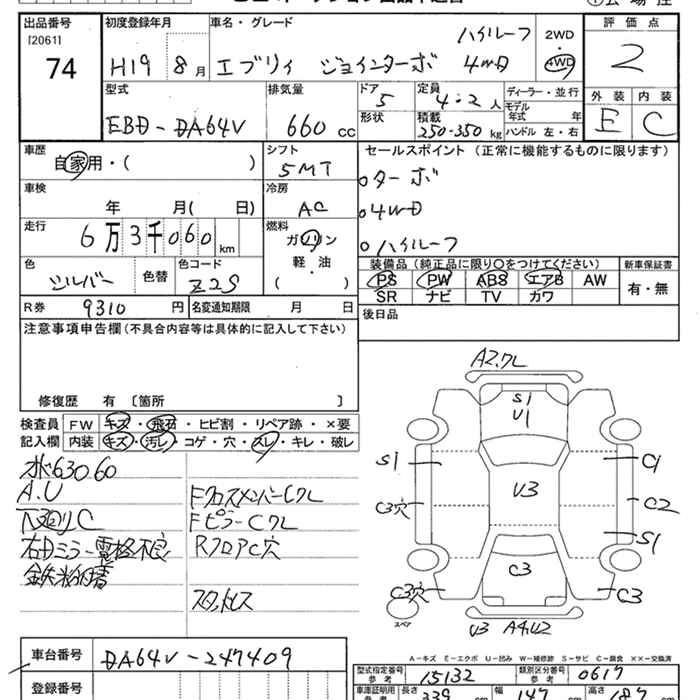 出品番号 初度登録年月 車名・グレード ハイルーフ 2WD 評価点
[2061] 74 H19 8月 エブリィ ジョインターボ 4WD 4WD 2
型式 排気量 ドア 定員 ディーラー・並行 外装 内装
EBD-DA64V 660 cc 5 4・2 人 モデル年式 年 E C
形状 積載 250・350 kg ハンドル 左・右
車歴 シフト セールスポイント(正常に機能するものに限ります)
自家用・( ) 5MT
ターボ
車検 冷房
年 月( 日) AC 4WD
走行 燃料
6万3千060km ガソリン ハイルーフ
軽・油
( )
色 色替 色コード 装備品(純正品に限り○をつけてください) 新車保証書
シルバー Z2S PS PW ABS エアB AW 有・無
SR ナビ TV カワ
R券 9310 円 名変通知期限 月 日 後日品
注意事項申告欄(不具合内容等は具体的に記入して下さい)
修復歴 有 [箇所 ]
検査員 FW キズ・飛石・ヒビ割・リペア跡・×要
記入欄 内装 キズ・汚レ・コゲ・穴・スレ・キレ・破レ
63060
A.U FクロスメンバーCクレ
下廻りC FピラーCクレ
右Dミラー電格不良 RフロアC穴
鉄粉
スタットレス
A2.クレ
S1
U1
S1 C1
U3
C3穴 C2
S1
C3
C3穴 C3
スペア
U3 A4.U2
A-キズ E-エクボ U-凹み W-補修跡 S-サビ C-腐食 ××-交換済
車台番号 DA64V-247409
型式指定番号 参考 15132 類別区分番号 参考 0617
登録番号
車庫証明用 参考 長さ 339 幅 147 高さ 187